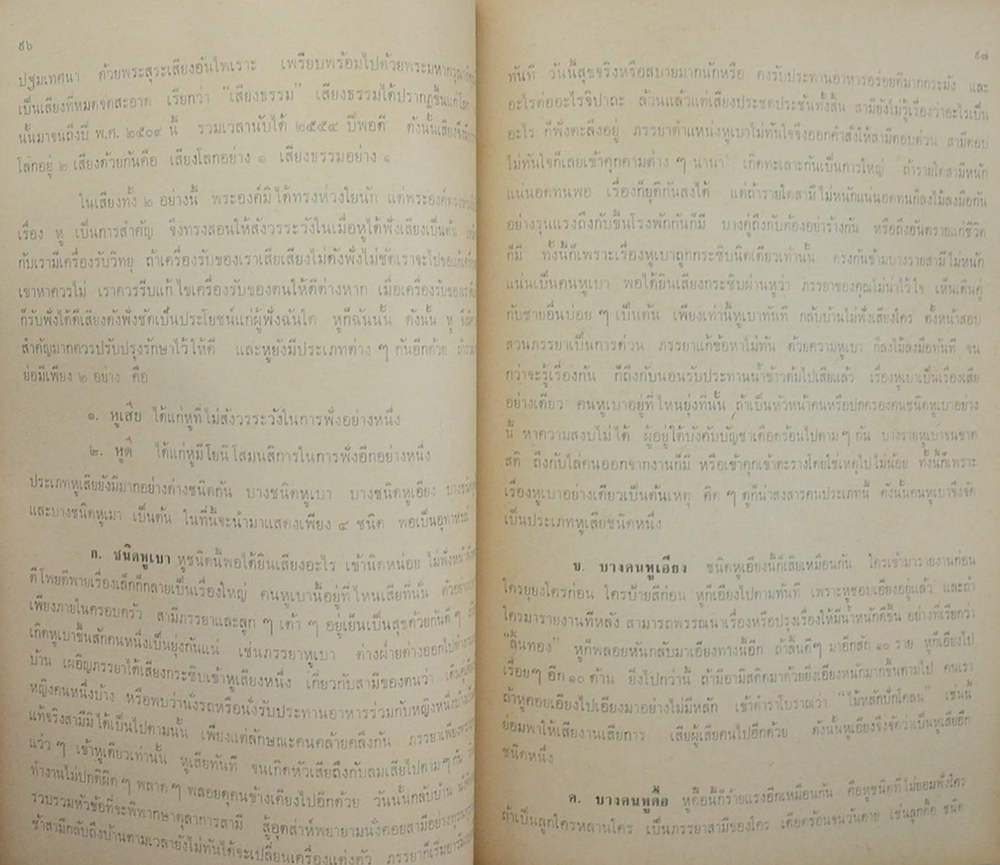 ๙๖
ปฐมเทศนา ด้วยพระสุระเสียงอันไพเราะ เพรียบพร้อมไปด้วยพระมหากรุณา
เป็นเสียงที่หมดจดสะอาด เรียกว่า "เสียงธรรม" เสียงธรรมได้ปรากฏขึ้นแก่โลก
นั้นมาจนถึงปี พ.ศ. ๒๕๐๙ นี้ รวมเวลานับได้ ๒๕๕๔ ปีพอดี ดังนั้นเสียงจึง
โลกอยู่ ๒ เสียงด้วยกันคือ เสียงโลกอย่าง ๑ เสียงธรรมอย่าง ๑
ในเสียงทั้ง ๒ อย่างนี้ พระองค์มิได้ทรงห่วงใยนัก แต่พระองค์ทรง
เรื่อง หู เป็นการสำคัญ จึงทรงสอนให้สังวรระวังในเมื่อหูได้ฟังเสียงเป็นต้น
กับเรามีเครื่องรับวิทยุ ถ้าเครื่องรับของเราเสียเสียงไม่ดังฟังไม่ชัดเราจะไป
เขาหาควรไม่ เราควรรีบแก้ไขเครื่องรับของตนให้ดีต่างหาก เมื่อเครื่องรับของเรา
ก็รับฟังได้ดีเสียงดังฟังชัดเป็นประโยชน์แก่ผู้ฟังฉันใด หูก็ฉันนั้น ดังนั้น หู จึง
สำคัญมากควรปรับปรุงรักษาไว้ให้ดี และหูยังมีประเภทต่าง ๆ กันอีกด้วย
ย่อมีเพียง ๒ อย่าง คือ
๑. หูเสีย ได้แก่หูที่ไม่สังวรระวังในการฟังอย่างหนึ่ง
๒. หูดี ได้แก่หูมีโยนิโสมนสิการในการฟังอีกอย่างหนึ่ง
ประเภทหูเสียยังมีมากอย่างต่างชนิดกัน บางชนิดหูเบา บางชนิดหูเอียง
และบางชนิดหูเมา เป็นต้น ในที่นี้จะนำมาแสดงเพียง ๔ ชนิด พอเป็นอุทาหรณ์
ก. ชนิดหูเบา หูชนิดนี้พอได้ยินเสียงอะไร เข้านิดหน่อย ไม่ฟัง
ดีโพยตีพายเรื่องเล็กก็กลายเป็นเรื่องใหญ่ คนหูเบานี้อยู่ที่ไหนเสียที่นั่น
เพียงภายในครอบครัว สามีภรรยาและลูก ๆ เต้า ๆ อยู่เย็นเป็นสุขด้วยกันดี ๆ
เกิดหูเบาขึ้นสักคนหนึ่งเป็นยุ่งกันแน่ เช่นภรรยาหูเบา ต่างฝ่ายต่างออกไป
บ้าน เผอิญภรรยาได้เสียงกระซิบเข้าหูเสียงหนึ่ง เกี่ยวกับสามีของตนว่า
หญิงคนหนึ่งบ้าง หรือพบว่านั่งรถหรือนั่งรับประทานอาหารร่วมกับหญิงหนึ่ง
แท้จริงสามีมิได้เป็นไปตามนั้น เพียงแต่ลักษณะคนคล้ายคลึงกัน ภรรยาเพียง
แว่ว ๆ เข้าหูเดียวเท่านั้น หูเสียทันที จนเกิดหัวเสียถึงกับลมเสียไปตาม ๆ กัน
ทำงานไม่ปกติผิด ๆ พลาด ๆ พลอยดุคนข้างเคียงไปอีกด้วย วันนั้นกลับบ้าน
รวบรวมหัวข้อที่จะพิพากษาตุลาการสามี สู้อุตส่าห์พยายามนั่งคอยสามีอย่าง
ช้าสามีกลับถึงบ้านตามเวลายังไม่ทันได้จะเปลี่ยนเครื่องแต่งตัว ภรรยาก็เริ่ม
๙๗
ทันที วันนี้สุขจริงหรือสบายมากนักหรือ คงรับประทานอาหารอร่อยดีมากกระมัง และ
อะไรต่ออะไรจิปาถะ ล้วนแล้วแต่เสียงประชดประชันทั้งสิ้น สามียังไม่รู้เรื่องว่าอะไรเป็น
อะไร ก็ฟังตะลึงอยู่ ภรรยาตำแหน่งหูเบาไม่ทันใจจึงออกคำสั่งให้สามีตอบด่วน สามีตอบ
ไม่ทันใจก็เลยเข้าคุกคามต่าง ๆ นานา เกิดทะเลาะกันเป็นการใหญ่ ถ้ารายใดสามีหนัก
แน่นอดทนพอ เรื่องก็ยุติกันลงได้ แต่ถ้ารายใดสามีไม่หนักแน่นอดทนก็ลงไม้ลงมือกัน
อย่างรุนแรงถึงกับขึ้นโรงพักกันก็มี บางคู่ถึงกับต้องอย่าร้างกัน หรือถึงอันตรายแก่ชีวิต
ก็มี ทั้งนี้ก็เพราะเรื่องหูเบาถูกกระซิบนิดเดียวเท่านั้น ตรงกันข้ามบางรายสามีไม่หนัก
แน่นเป็นคนหูเบา พอได้ยินเสียงกระซิบผ่านหูว่า ภรรยาของคุณไม่น่าไว้ใจ เห็นเดินคู่
กับชายอื่นบ่อย ๆ เป็นต้น เพียงเท่านี้หูเบาทันที กลับบ้านไม่ฟังเสียงใคร ตั้งหน้าสอบ
สวนภรรยาเป็นการด่วน ภรรยาแก้ข้อหาไม่ทัน ด้วยความหูเบา ก็ลงไม้ลงมือทันที จน
กว่าจะรู้เรื่องกัน ก็ถึงกับนอนรับประทานน้ำข้าวต้มไปเสียแล้ว เรื่องหูเบาเป็นเรื่องเสีย
อย่างเดียว คนหูเบาอยู่ที่ไหนยุ่งที่นั้น ถ้าเป็นหัวหน้าคนหรือปกครองคนชนิดหูเบาอย่าง
นี้ หาความสงบไม่ได้ ผู้อยู่ใต้บังคับบัญชาเดือดร้อนไปตาม ๆ กัน บางรายหูเบาจนขาด
สติ ถึงกับไล่คนออกจากงานก็มี หรือเข้าคุกเข้าตะรางโดยใช่เหตุไปไม่น้อย ทั้งนี้ก็เพราะ
เรื่องหูเบาอย่างเดียวเป็นต้นเหตุ คิด ๆ ดูก็น่าสงสารคนประเภทนี้ ดังนั้นคนหูเบาจึงจัด
เป็นประเภทหูเสียชนิดหนึ่ง
ข. บางคนหูเอียง ชนิดหูเอียงนี้ก็เสียเหมือนกัน ใครเข้ามารายงานก่อน
ใครยุยงใครก่อน ใครป้ายสีก่อน หูก็เอียงไปตามทันที เพราะหูชอบเอียงอยู่แล้ว และถ้า
ใครมารายงานทีหลัง สามารถพรรณนาเรื่องหรือปรุงเรื่องให้มีน้ำหนักดีขึ้น อย่างที่เรียกว่า
"ลิ้นทอง" หูก็พลอยหันกลับมาเอียงทางนี้อีก ถ้าลิ้นดีๆ มาอีกสัก ๑๐ ราย หูก็เอียงไป
เรื่อยๆ อีก ๑๐ ด้าน ยิ่งไปกว่านี้ ถ้ามีอามิสติดมาด้วยยิ่งเอียงหนักมากขึ้นตามไป คนเรา
ถ้าหูคอยเอียงไปเอียงมาอย่างไม่มีหลัก เข้าตำราโบราณว่า "ไม้หลักปักโคลน" เช่นนี้
ย่อมพาให้เสียงานเสียการ เสียผู้เสียคนไปอีกด้วย ดังนั้นหูเอียงจึงจัดว่าเป็นหูเสียอีก
ชนิดหนึ่ง
ค. บางคนหูดื้อ หูดื้อนี้ก็ร้ายแรงอีกเหมือนกัน คือหูชนิดที่ไม่ยอมฟังใคร
ถ้าเป็นลูกใครหลานใคร เป็นภรรยาสามีของใคร เดือดร้อนจนวันตาย เช่นลูกดื้อ ชนิด